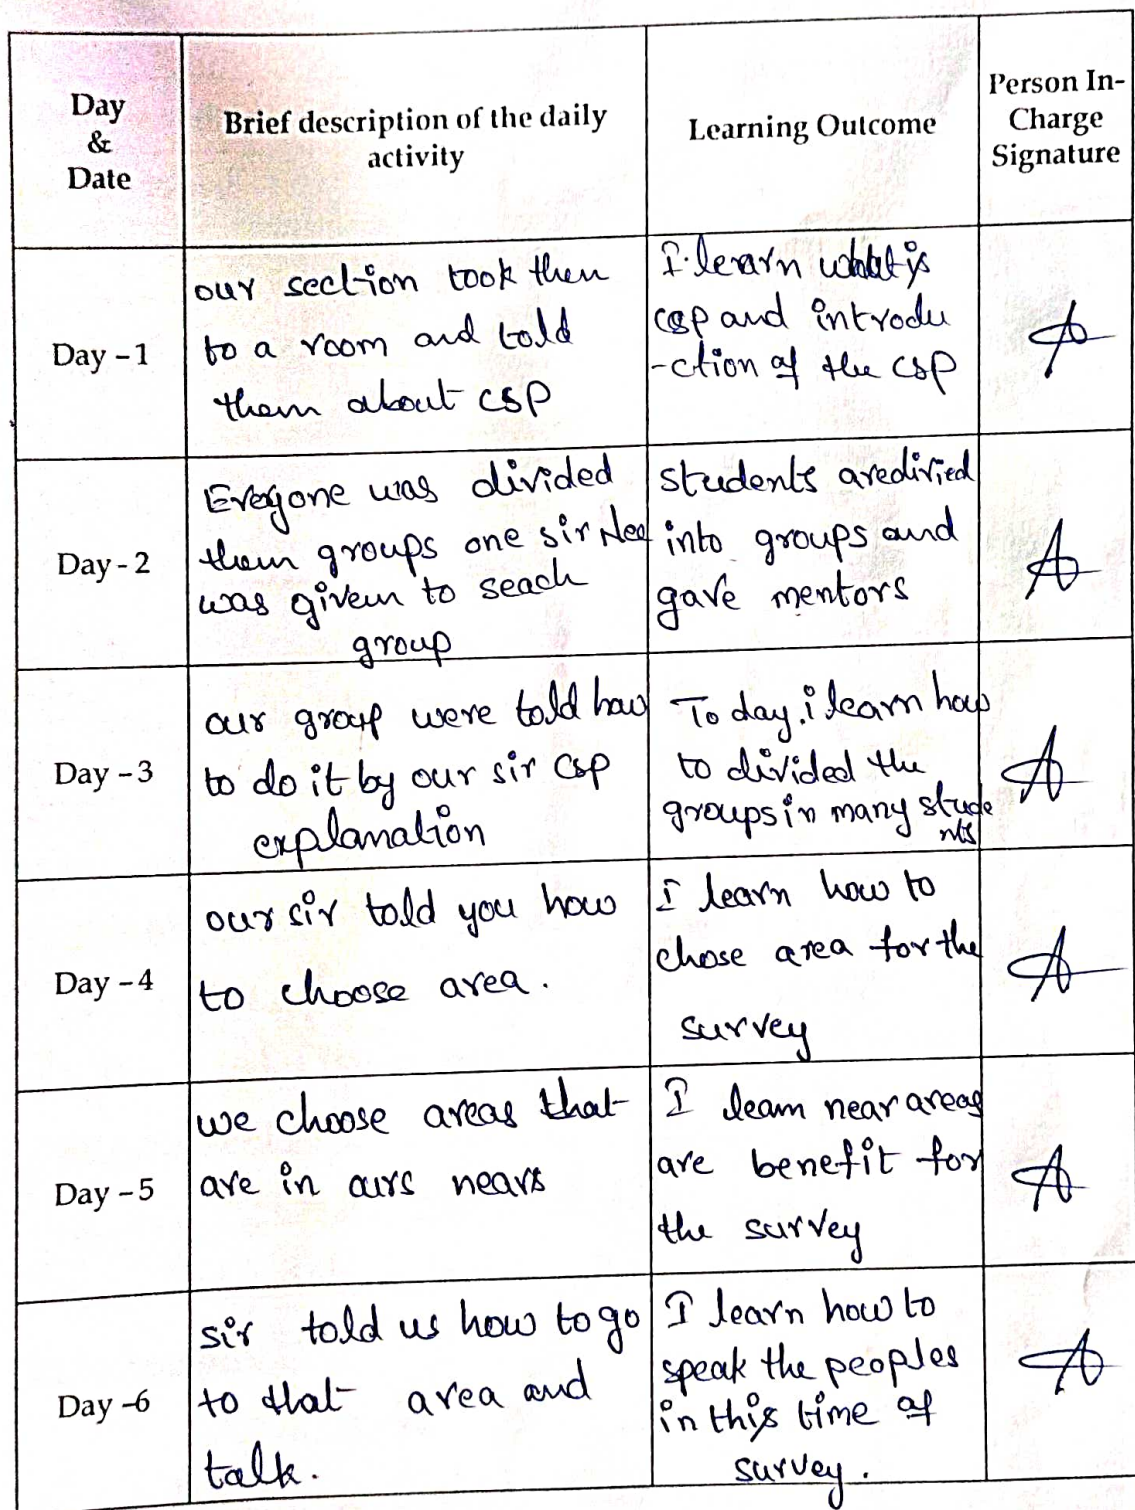 Day
&
Date
Brief description of the daily
activity
Learning Outcome
Person In-
Charge
Signature
Day - 1
our section took then
to a room and told
them about CSP
I learn what is
csp and introdu
-ction of the CSP
Day - 2
Everyone was divided
them groups one sir
was given to seach
group
students are divied
into groups and
gave mentors
Day - 3
our group were told how
to do it by our sir csp
explanation
To day. i learn how
to divided the
groups in many stude
nts
Day - 4
our sir told you how
to choose area.
I learn how to
chose area for the
survey
Day - 5
we choose areas that
are in ours nears
I learn near areas
are benefit for
the survey
Day -6
sir told us how to go
to that area and
talk.
I learn how to
speak the peoples
in this time of
survey.